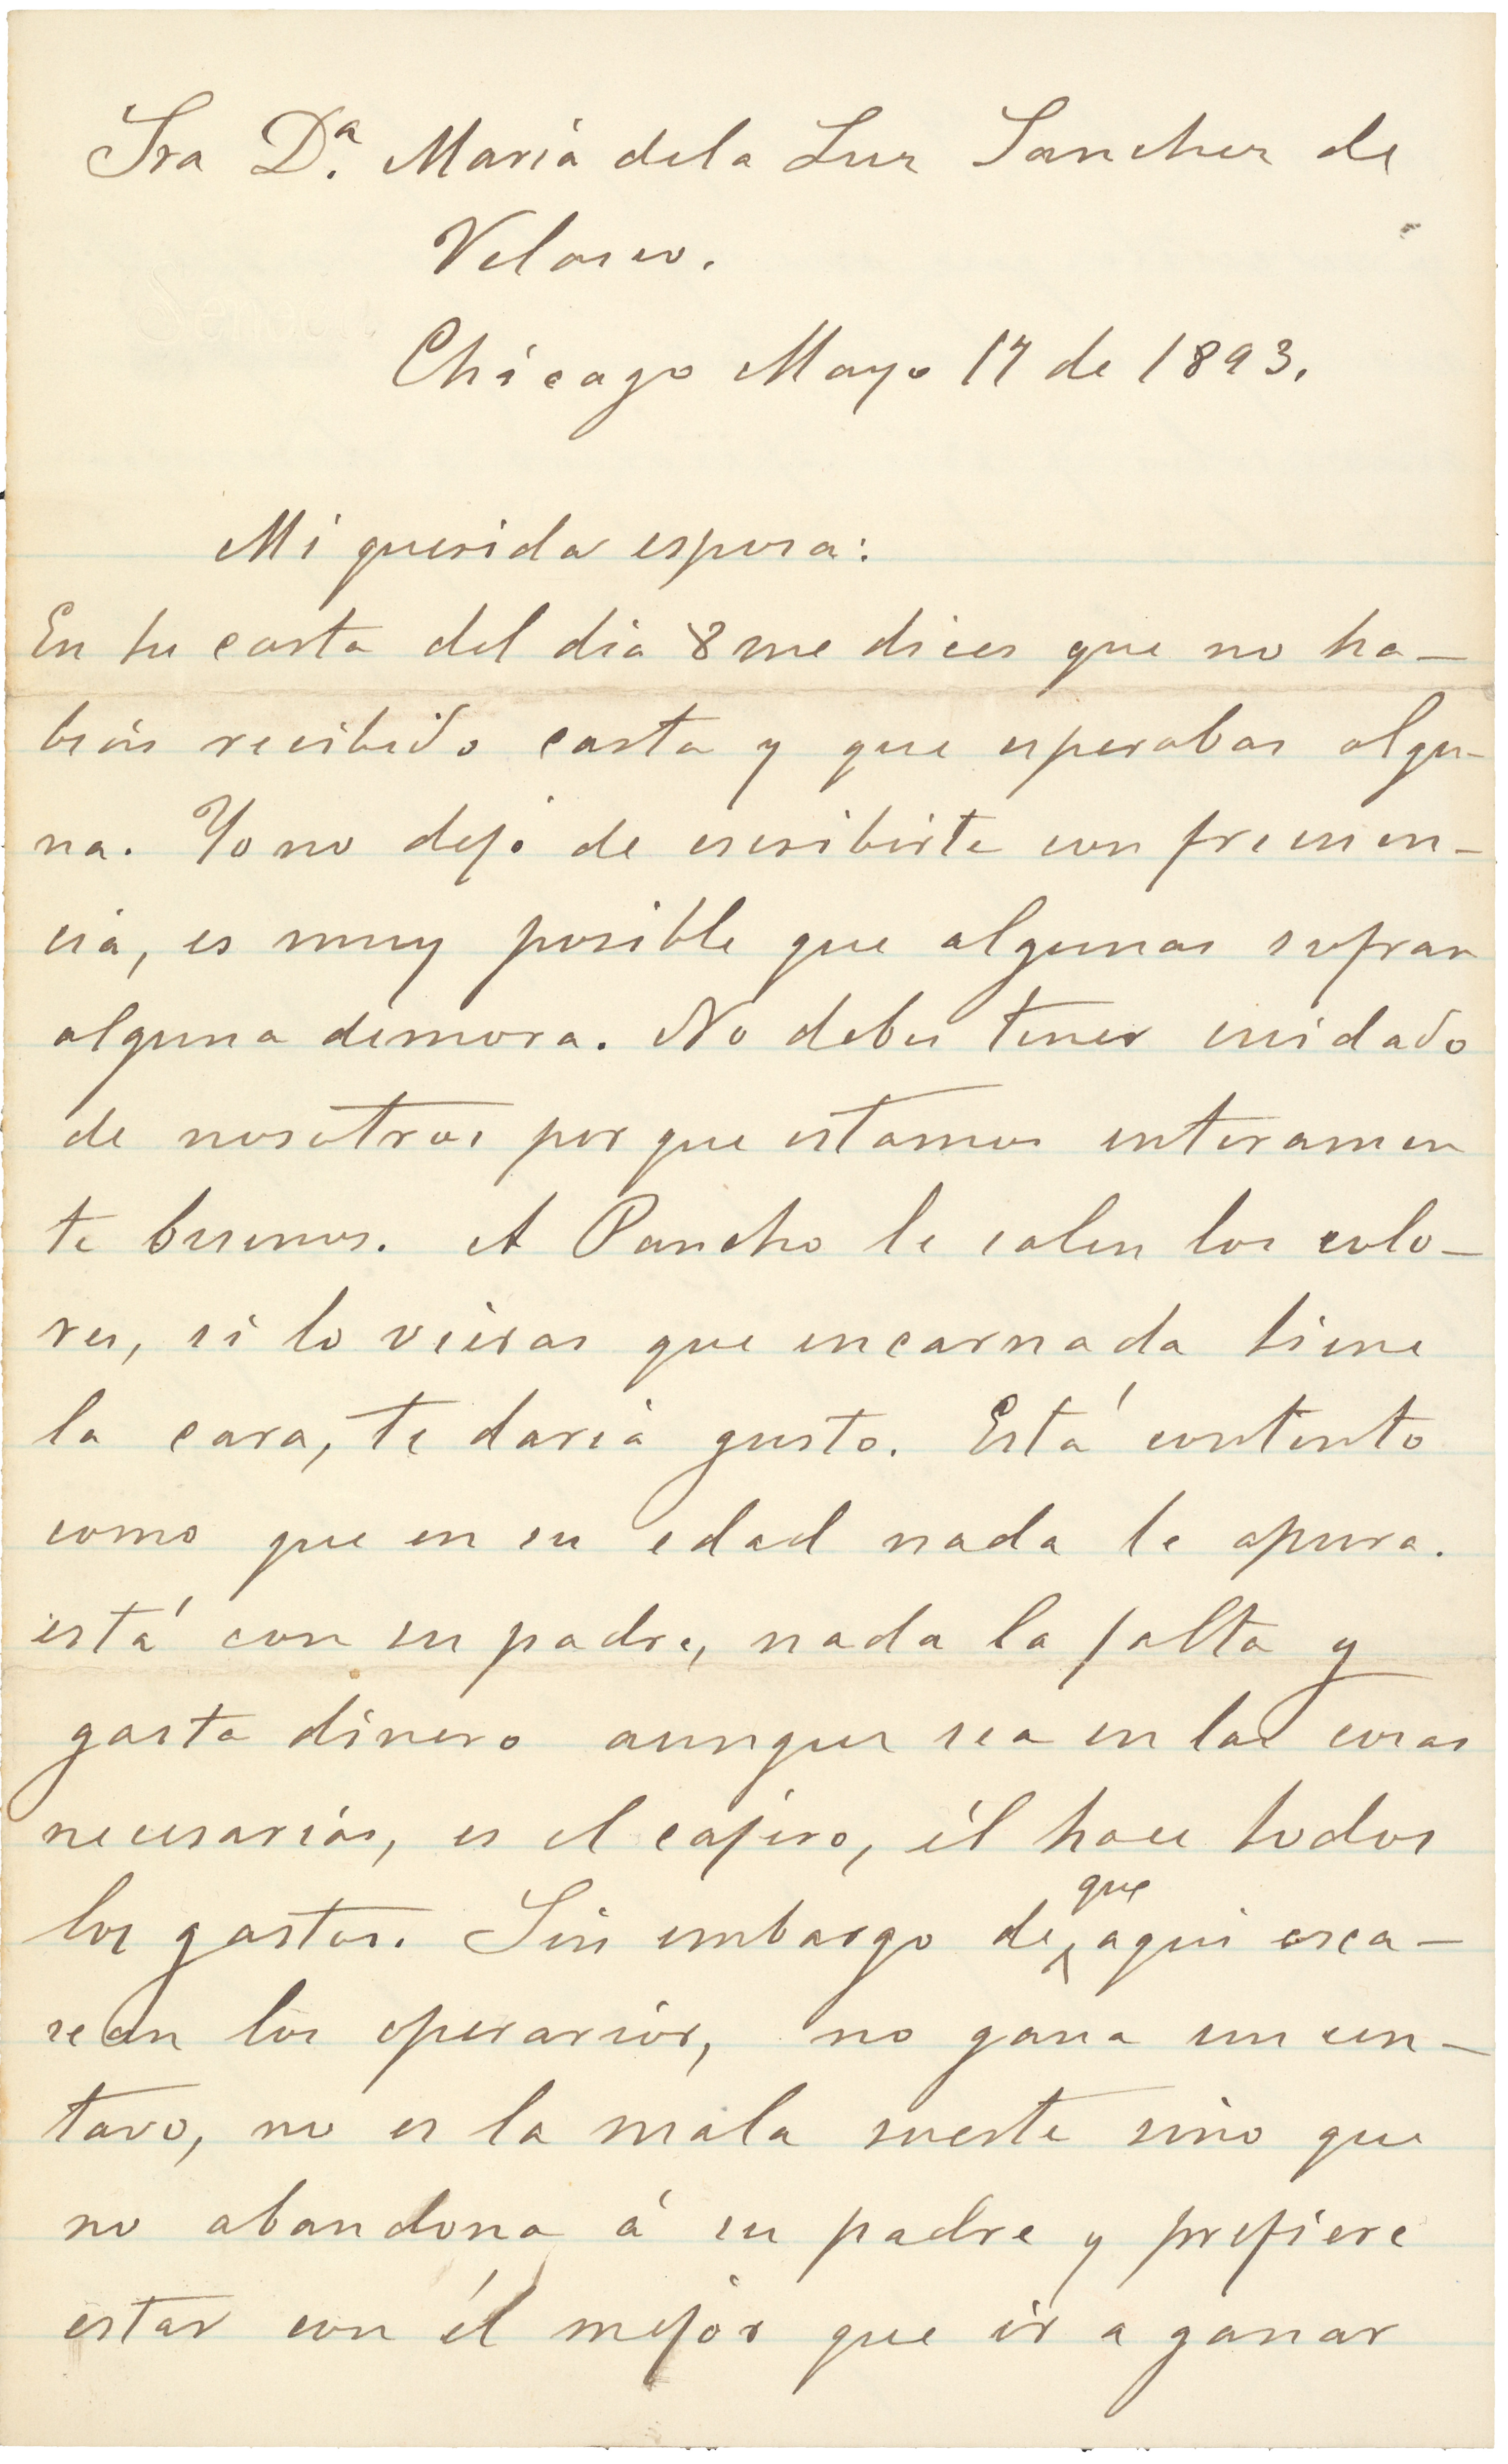 Sra D.ª Maria dela Luz Sanchez de
Velasco.
Chicago Mayo 17 de 1893.
Mi querida esposa:
En tu carta del dia 8 me dices que no ha-
bias recibido carta y que esperabas algu-
na. Yo no dejo de escribirte con frecuen-
cia, es muy posible que algunas sufran
alguna demora. No debes tener cuidado
de nosotros por que estamos enteramen
te buenos. A Pancho le salen los colo-
res, si lo vieras que encarnada tiene
la cara, te daria gusto. Está contento
como que en su edad nada le apura.
está con su padre, nada la falta y
gasta dinero aunque sea en las cosas
necesarias, es el cajero, él hace todos
los gastos. Sin embargo de que aqui esca-
sean los operarios, no gana un cen-
tavo, no es la mala suerte sino que
no abandona á su padre y prefiere
estar con él mejor que ir a ganar